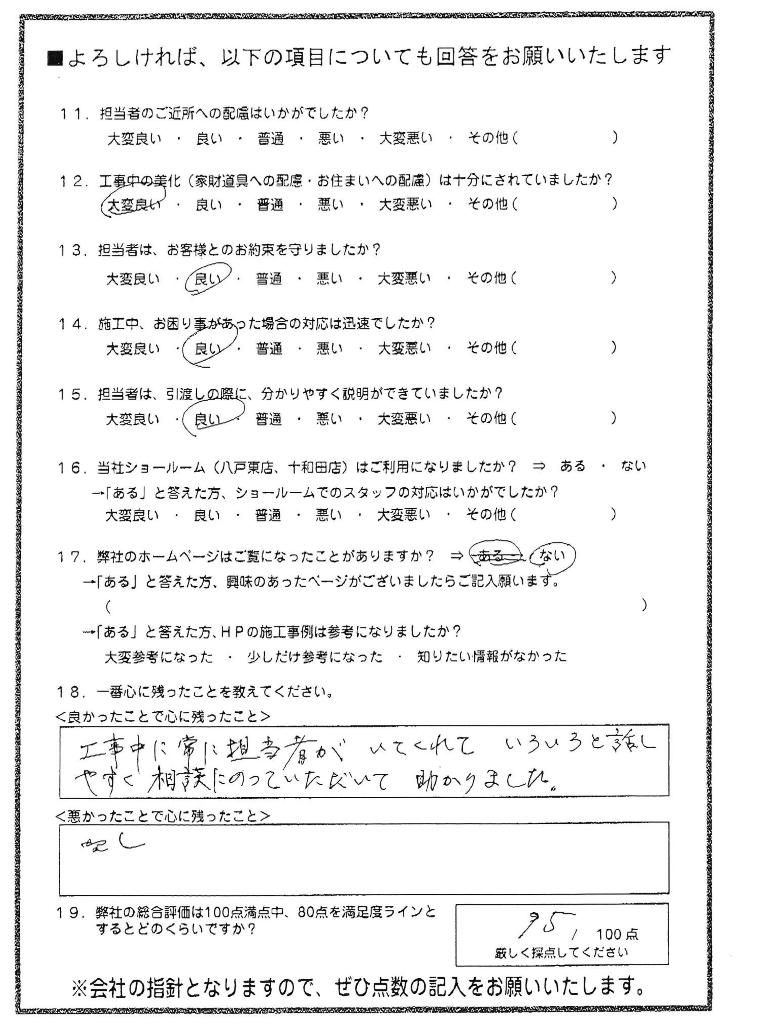 ■よろしければ、以下の項目についても回答をお願いいたします
11．担当者のご近所への配慮はいかがでしたか？
大変良い ・ 良い ・ 普通 ・ 悪い ・ 大変悪い ・ その他（　　　　　）
12．工事中の美化（家財道具への配慮・お住まいへの配慮）は十分にされていましたか？
大変良い ・ 良い ・ 普通 ・ 悪い ・ 大変悪い ・ その他（　　　　　）
13．担当者は、お客様とのお約束を守りましたか？
大変良い ・ 良い ・ 普通 ・ 悪い ・ 大変悪い ・ その他（　　　　　）
14．施工中、お困り事があった場合の対応は迅速でしたか？
大変良い ・ 良い ・ 普通 ・ 悪い ・ 大変悪い ・ その他（　　　　　）
15．担当者は、引渡しの際に、分かりやすく説明ができていましたか？
大変良い ・ 良い ・ 普通 ・ 悪い ・ 大変悪い ・ その他（　　　　　）
16．当社ショールーム（八戸東店、十和田店）はご利用になりましたか？ ⇒ ある ・ ない
→「ある」と答えた方、ショールームでのスタッフの対応はいかがでしたか？
大変良い ・ 良い ・ 普通 ・ 悪い ・ 大変悪い ・ その他（　　　　　）
17．弊社のホームページはご覧になったことがありますか？ ⇒ ある ・ ない
→「ある」と答えた方、興味のあったページがございましたらご記入願います。
（　　　　　）
→「ある」と答えた方、HPの施工事例は参考になりましたか？
大変参考になった ・ 少しだけ参考になった ・ 知りたい情報がなかった
18．一番心に残ったことを教えてください。
＜良かったことで心に残ったこと＞
工事中に常に担当者が いてくれて いろいろと話し
やすく 相談にのっていただいて 助かりました。
＜悪かったことで心に残ったこと＞
なし
19．弊社の総合評価は100点満点中、80点を満足度ラインと
するとどのくらいですか？
95/100点
厳しく採点してください
※会社の指針となりますので、ぜひ点数の記入をお願いいたします。